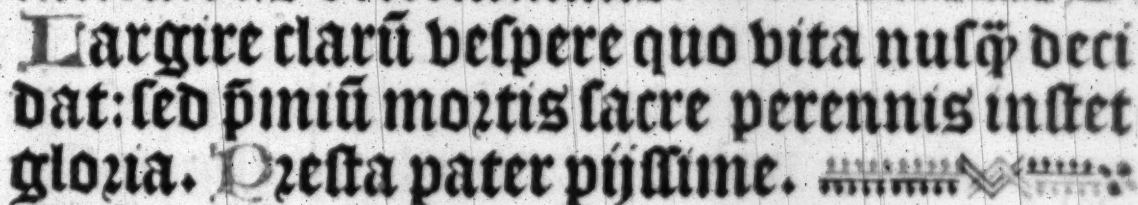 Largire clarū veſpere quo vita nuſq̄ꝫ deci
dat: ſed p̄miū moꝛtis ſacre perennis inſtet
gloꝛia. Pꝛeſta pater pijſſime. V